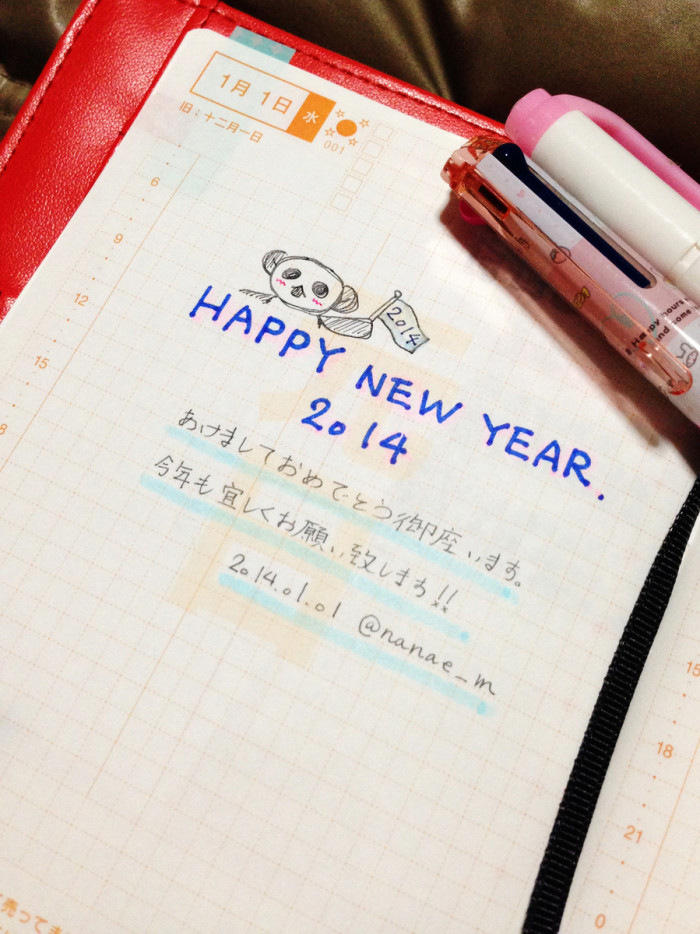 1月1日 水
旧：十二月一日
001
6
9
12
15
2014
HAPPY NEW YEAR.
2014
あけましておめでとう御座います。
今年も宜しくお願い致します!!
2014.01.01 @nanae_m
Happy hours
and some
05
15
18
21
0
売っても